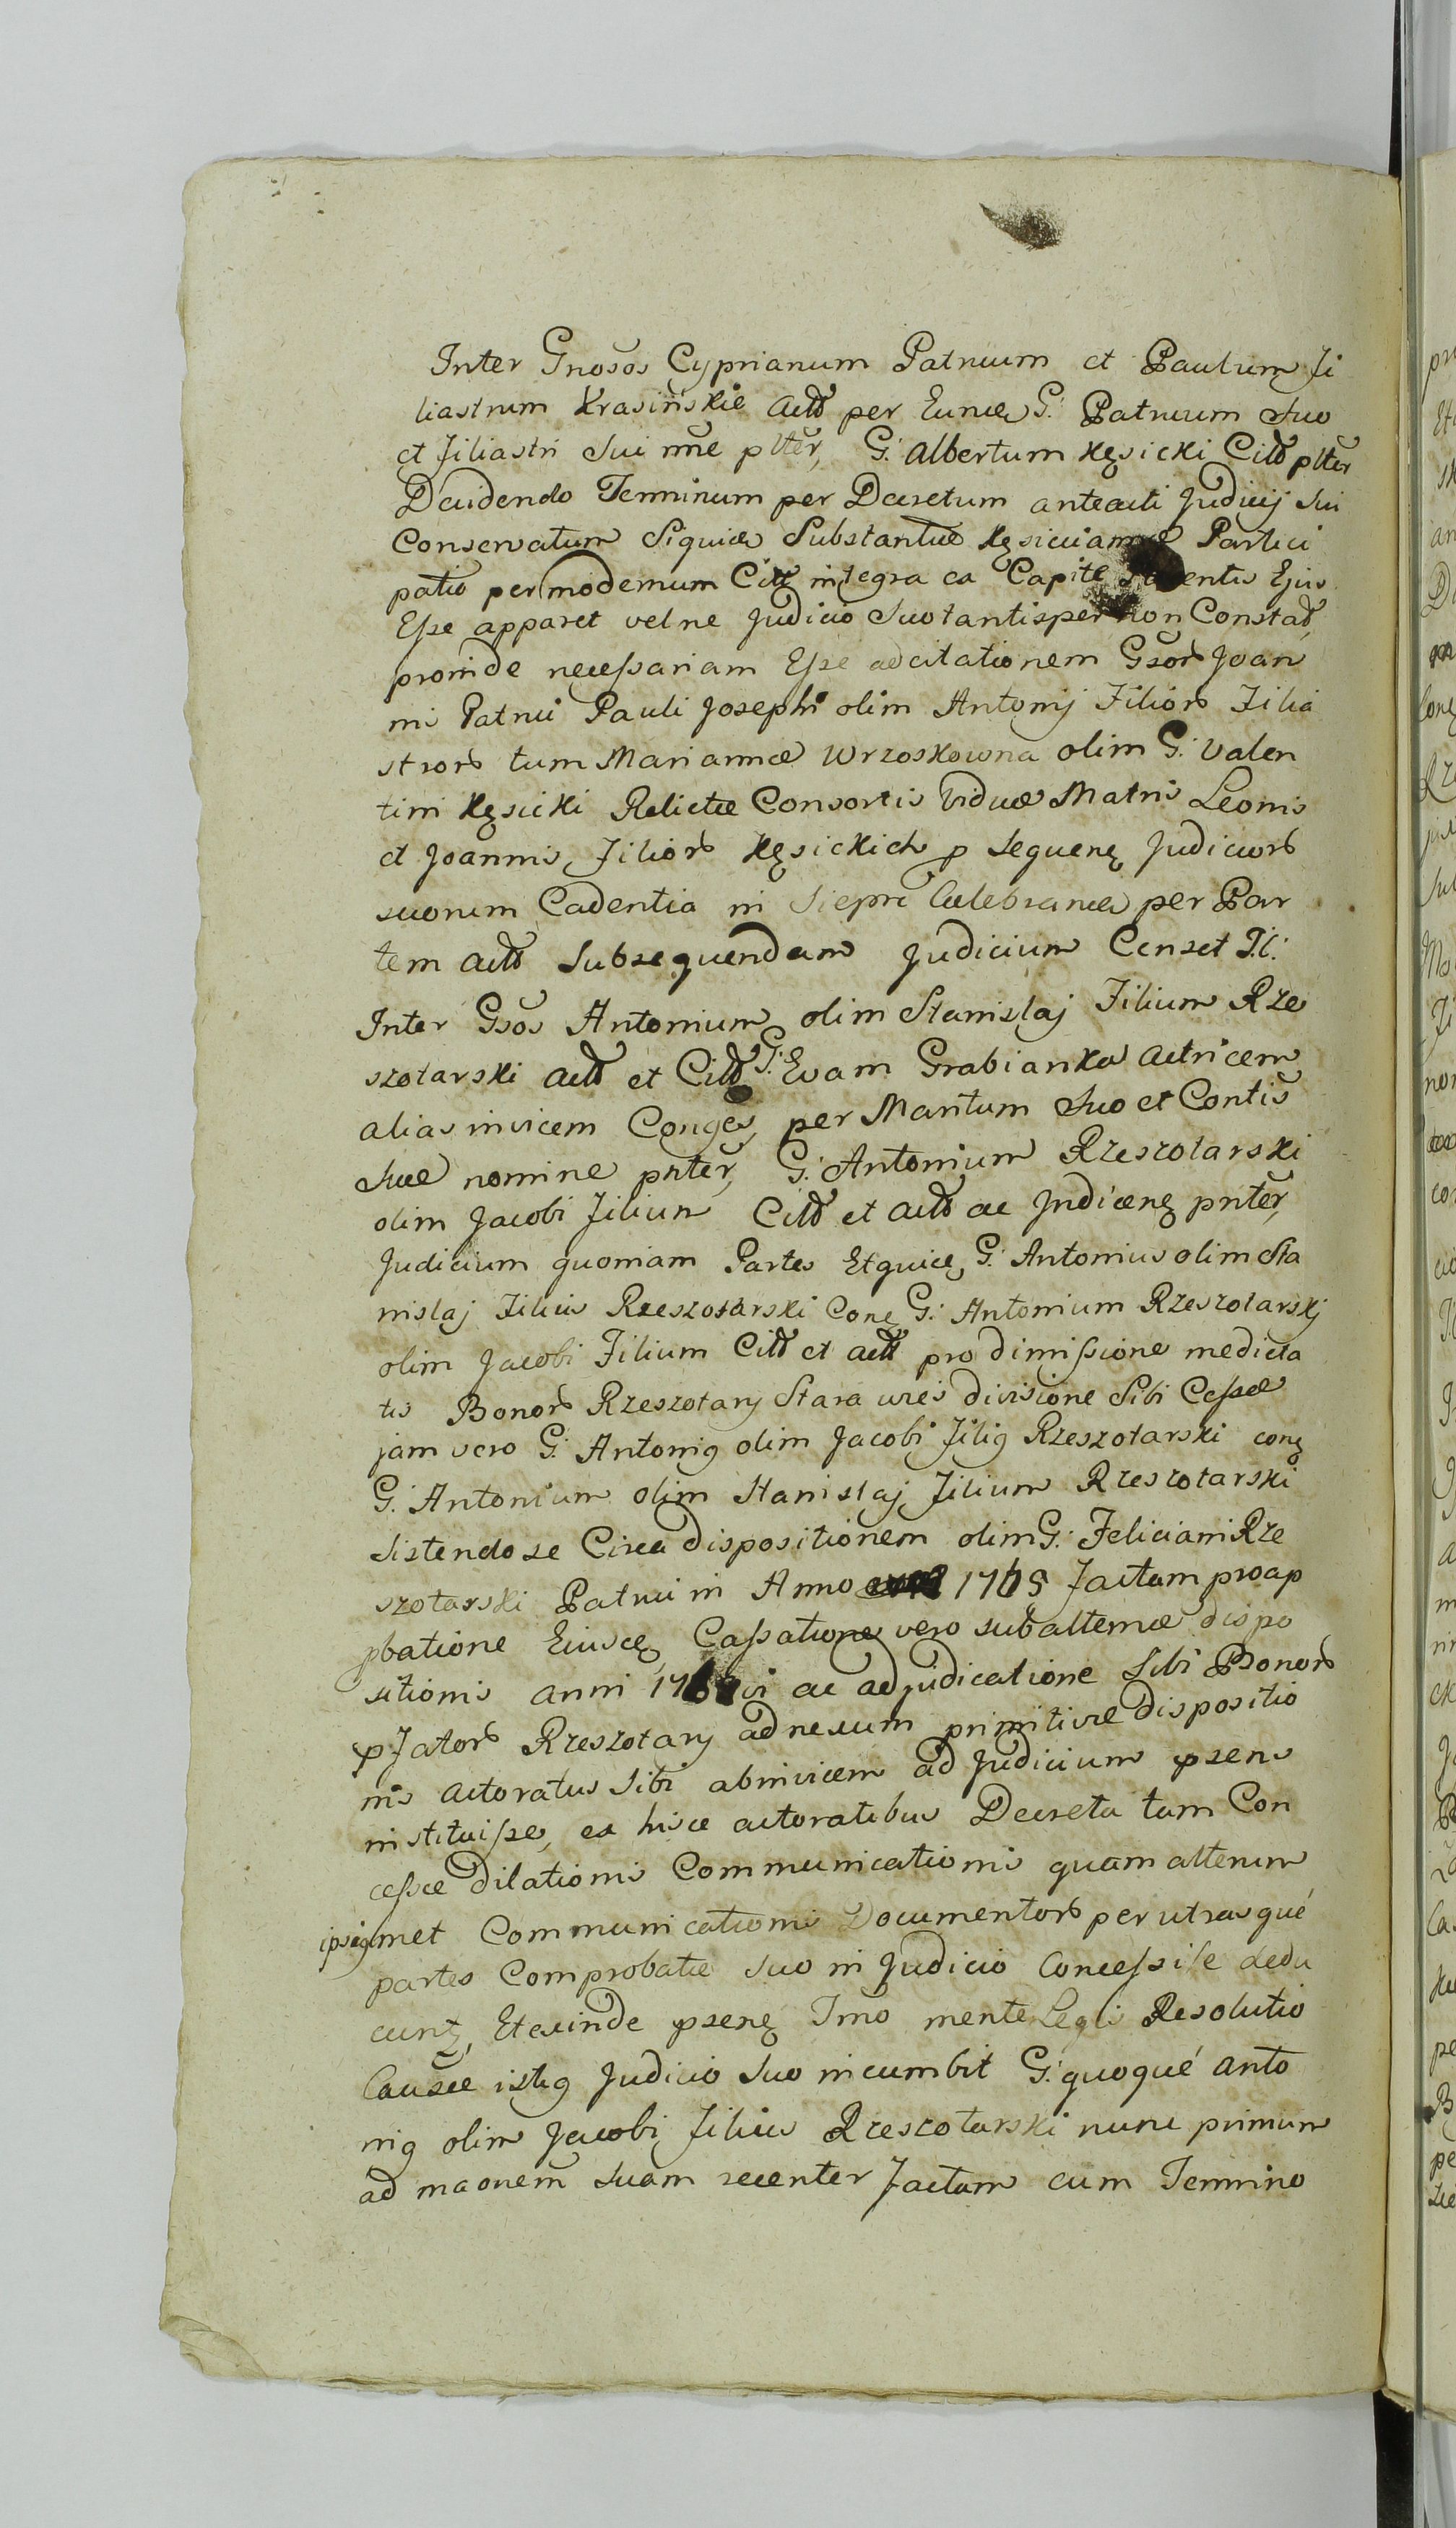 Inter Gnosos Cyprianum Patruum et Paulum Fi
liastrum Krasińskie Actō per Eunce G: Patruum Suo
et Filiastri Sui nne pltēr, G: Albertum Kęsicki Citō pltēr
Decidendo Terminum per Decretum anteacti Judicij Sui
Conservatum Siquid Substantiæ Kęsicciannæ Partici
patio per modernum Citt integra ex Capite Ejus
Esse apparet velne Judicio Suo tantisper non Constad,
proinde necessariam Esse adcitationem Gsorb Joan
nis Patrui Pauli Josephi olim Antonij Filiorb Filia
strorb tum Mariannæ Wrzoskowna olim G: Valen
tini Kęsicki Relictæ Consortis Viduæ Matris Leonis
et Joannis, Filiorb Kęsickich p Sequenę Judiciorb
suorum Cadentia in Siepre Celebranda per Par
tem Actō Subsequendam Judicium Censet P.i:
Inter Gsos Antonium olim Stanislaj Filium Rze
szotarski Actō et Citō G: Evam Grabianka Actricem
alias invicem Conges, per Maritum Suo et Contis
Suæ nomine pntēr, G: Antonium Rzeszotarski
olim Jacobi Filium Citō et Actō ac Judicenę pntēr,
Judicium quoniam Partes Etquice, G: Antonius olim Sta
nislaj Filius Rzeszotarski Conę G: Antonium Rzeszotarskj
olim Jacobi Filium Citō et Actō pro dimissione medieta
tis Bonorb Rzeszotary Stara wies divisione Sibi Cessæ
jam vero G: Antonig olim Jacobi Filig Rzeszotarski conę
G: Antonium olim Stanislaj Filium Rzeszotarski
Sistendo se Circa dispositionem olim G: Feliciani Rze
szotarski Patrui in Anno 1765 Factam pro ap
pbatione Eiusce, Cassatione vero subalternæ dispo
sitionis anni ac adjudicatione Sibi Bonorb
pFatorb Rzeszotary ad nexum primitivæ dispositio
nis actoratus Sibi abinvicem ad Judicium psens
instituisse, ex hisce actoratibus Decreta tam Con
cessæ dilationis Communicationis quam alterum
ipsigmet Communicationis Documentorb per utrasqué
partes Comprobatæ Suo in Judicio Concessisse dedu
cunt, Etexinde psenę Imo mente Legis Resolutio
Causæ istig Judicio Suo incumbit G: quoqué Anto
nig olim Jacobi Filius Rzeszotarski nunc primum
ad maonem Suam recenter Factam cum Termino